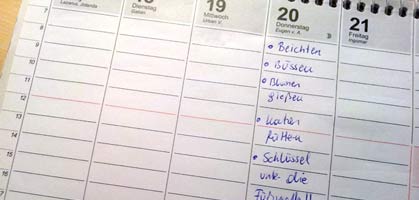 Lazarus, Jolanda
18
Dienstag
Gatian
19
Mittwoch
Urban V.
20
Donnerstag
Eugen v. A.
21
Freitag
Ingomar
7
8
9
10
11
12
13
14
15
16
17
• Beichten
• Büssen
• Blumen
gießen
• Katzen
füttern
• Schlüssel
unter die